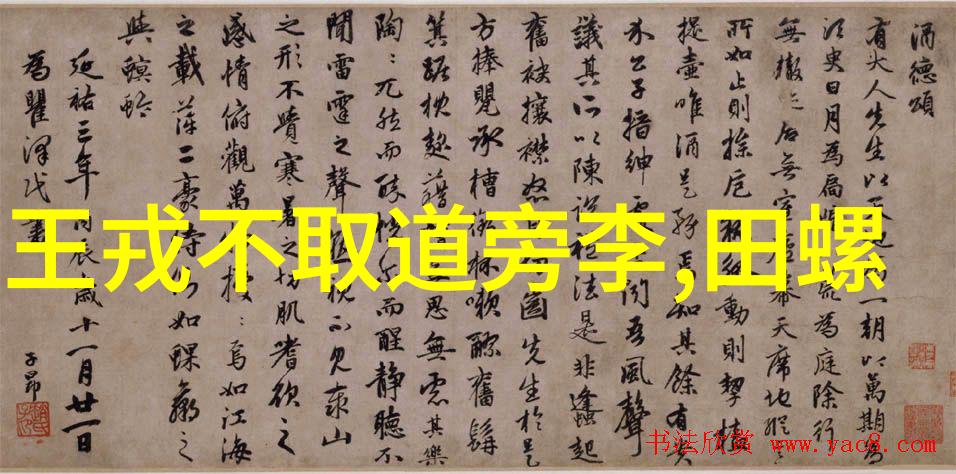 酒德頌
有大人先生以天一朝以萬期為
須臾日月為扃牖荒為庭除行
無轍跡居無室廬幕天席地縱
所如止則操卮執觚動則挈榼
提壺唯酒是務焉知其餘有貴
介公子搢紳處士聞吾風聲
議其所以陳說禮法是非鋒起
奮袂攘襟怒目先生於是
方捧甖承槽銜杯漱醪奮髯
箕踞枕麴藉糟無思無慮其樂
陶〻兀然而醉恍尒而醒靜聽不
聞雷霆之聲視不見泰山
之形不覺寒暑之切肌嗜欲之
感情俯觀萬物擾〻焉如江海
之載萍二豪侍側如蜾蠃之
與螟蛉
延祐三年丙辰歲十一月廿一日
為瞿澤民書
子昂
王戎不取道旁李,田螺
书法欣赏 www.yac8.com